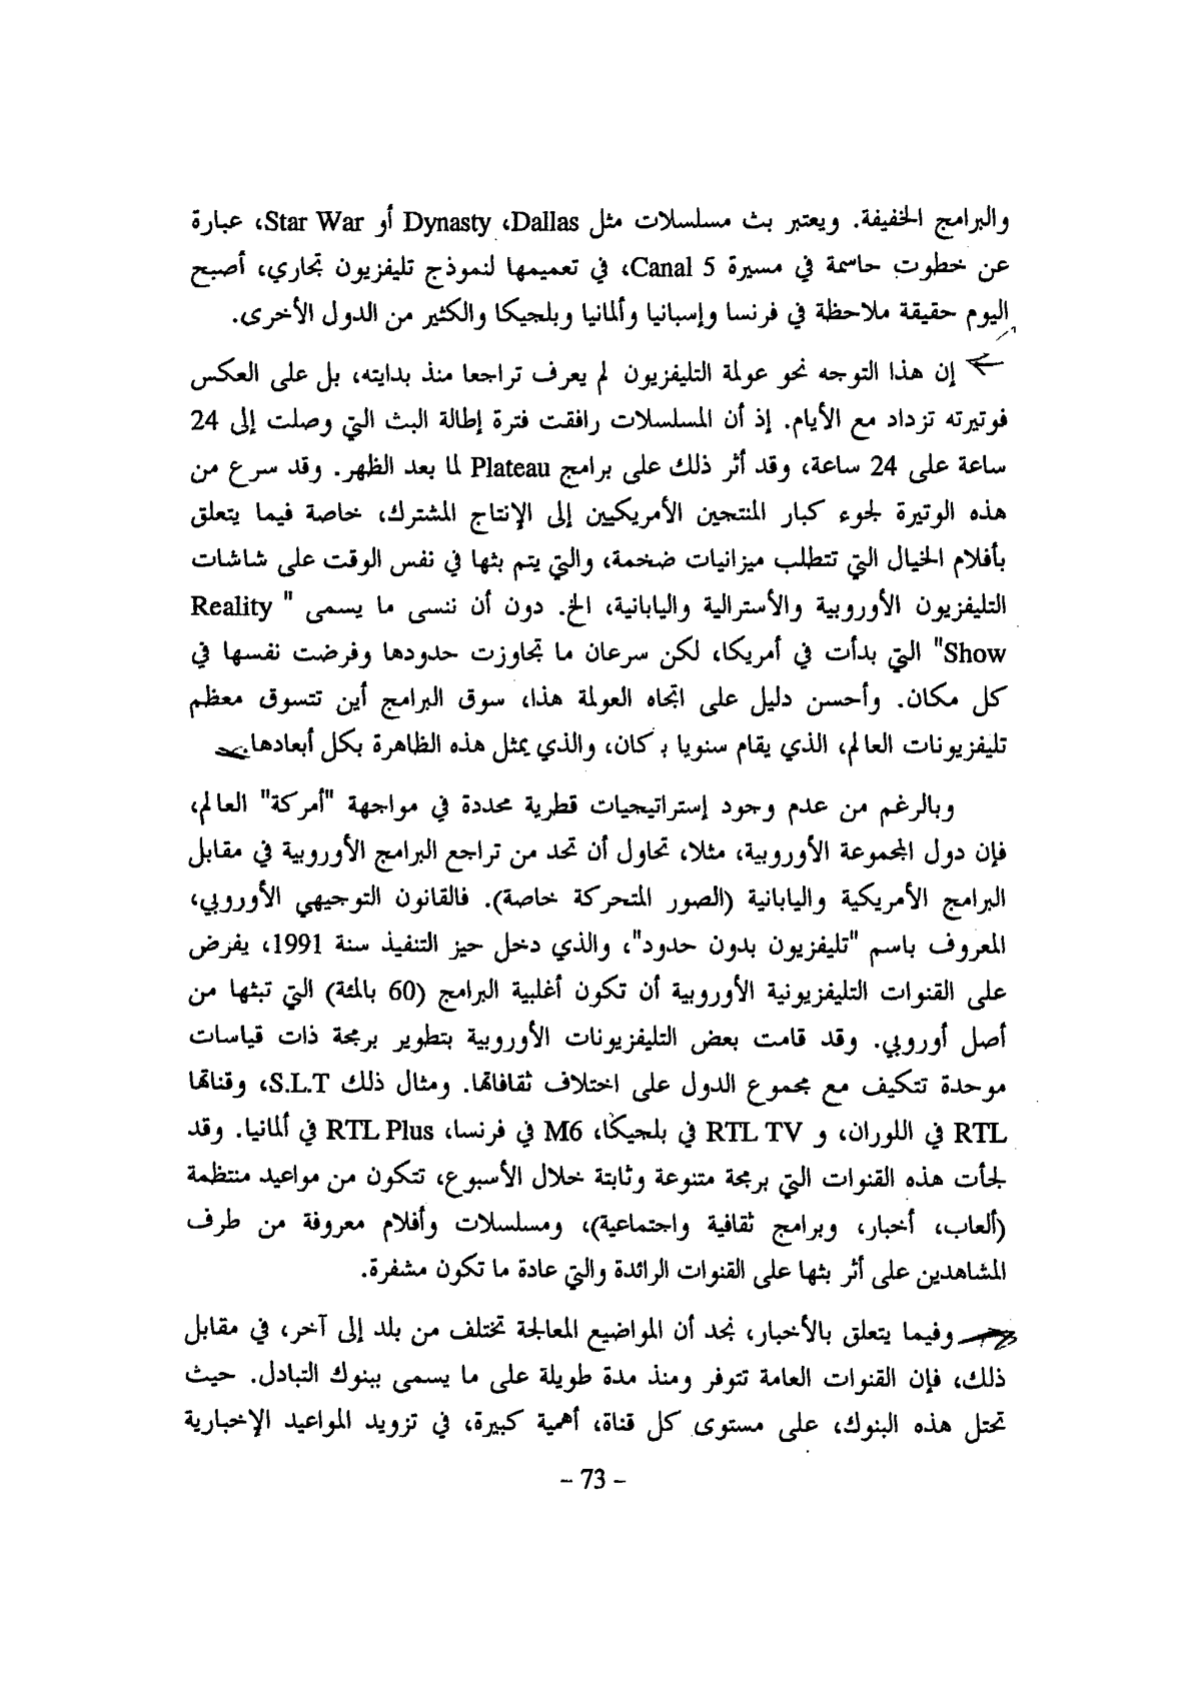 والبرامج الخفيفة. ويعتبر بث مسلسلات مثل Dallas، Dynasty أو Star War، عبارة
عن خطوت حاسمة في مسيرة Canal 5، في تعميمها لنموذج تليفزيون تجاري، أصبح
اليوم حقيقة ملاحظة في فرنسا وإسبانيا وألمانيا وبلجيكا والكثير من الدول الأخرى.
إن هذا التوجه نحو عولمة التليفزيون لم يعرف تراجعا منذ بدايته، بل على العكس
فوتيرته تزداد مع الأيام. إذ أن المسلسلات رافقت فترة إطالة البث التي وصلت إلى 24
ساعة على 24 ساعة، وقد أثر ذلك على برامج Plateau لما بعد الظهر. وقد سرع من
هذه الوتيرة لجوء كبار المنتجين الأمريكيين إلى الإنتاج المشترك، خاصة فيما يتعلق
بأفلام الخيال التي تتطلب ميزانيات ضخمة، والتي يتم بثها في نفس الوقت على شاشات
التليفزيون الأوروبية والأسترالية واليابانية، الخ. دون أن ننسى ما يسمى " Reality
Show" التي بدأت في أمريكا، لكن سرعان ما تجاوزت حدودها وفرضت نفسها في
كل مكان. وأحسن دليل على اتجاه العولمة هذا، سوق البرامج أين تتسوق معظم
تليفزيونات العالم، الذي يقام سنويا بـ كان، والذي يمثل هذه الظاهرة بكل أبعادها.
وبالرغم من عدم وجود إستراتيجيات قطرية محددة في مواجهة "أمركة" العالم،
فإن دول المجموعة الأوروبية، مثلا، تحاول أن تحد من تراجع البرامج الأوروبية في مقابل
البرامج الأمريكية واليابانية (الصور المتحركة خاصة). فالقانون التوجيهي الأوروبي،
المعروف باسم "تليفزيون بدون حدود"، والذي دخل حيز التنفيذ سنة 1991، يفرض
على القنوات التليفزيونية الأوروبية أن تكون أغلبية البرامج (60 بالمئة) التي تبثها من
أصل أوروبي. وقد قامت بعض التليفزيونات الأوروبية بتطوير برمجة ذات قياسات
موحدة تتكيف مع مجموع الدول على اختلاف ثقافاتها. ومثال ذلك S.L.T، وقناتها
RTL في اللوران، و RTL TV في بلجيكا، M6 في فرنسا، RTL Plus في ألمانيا. وقد
لجأت هذه القنوات التي برمجة متنوعة وثابتة خلال الأسبوع، تتكون من مواعيد منتظمة
(ألعاب، أخبار، وبرامج ثقافية واجتماعية)، ومسلسلات وأفلام معروفة من طرف
المشاهدين على أثر بثها على القنوات الرائدة والتي عادة ما تكون مشفرة.
وفيما يتعلق بالأخبار، نجد أن المواضيع المعالجة تختلف من بلد إلى آخر، في مقابل
ذلك، فإن القنوات العامة تتوفر ومنذ مدة طويلة على ما يسمى ببنوك التبادل. حيث
تحتل هذه البنوك، على مستوى كل قناة، أهمية كبيرة، في تزويد المواعيد الإخبارية
- 73 -